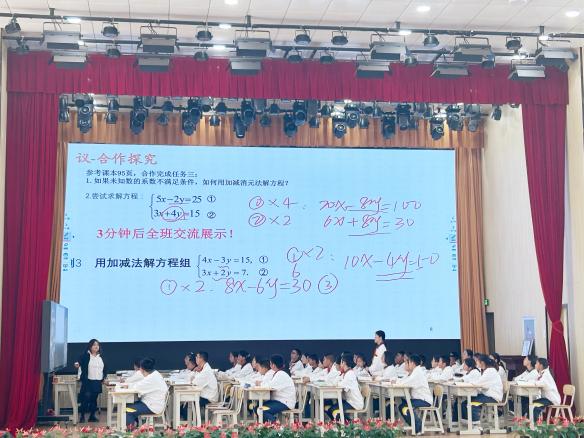 议-合作探究
参考课本95页，合作完成任务三：
1. 如果未知数的系数不满足条件，如何用加减消元法解方程？
2.尝试求解方程： 5x-2y=25 ①
3x+4y=15 ②
①×4 : 20x-8y=100
②×2 6x+8y=30
3分钟后全班交流展示！
例3 用加减法解方程组 4x-3y=15, ①
3x+2y=7. ②
①×2 : 10x-4y=50
①×2: 8x-6y=30 ③
6